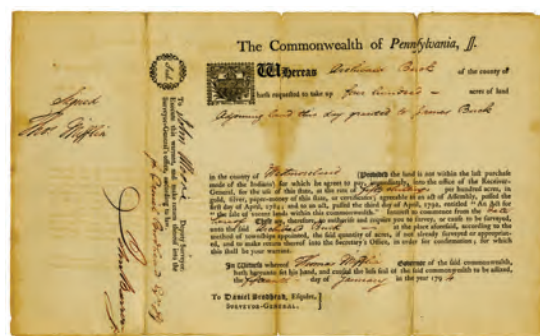 The Commonwealth of Pennsylvania, ſſ.
Whereas Buck of the county of
hath requested to take up four hundred acres of land
adjoining land this day granted to James Buck
in the county of Westmoreland (Provided the land is not within the last purchase
made of the Indians) for which he agrees to pay, immediately, into the office of the Receiver-
General, for the use of this state, at the rate of fifty shillings per hundred acres, in
gold, silver, paper-money of this state, or certificates; agreeable to an act of Assembly, passed the
first day of April, 1784; and to an act, passed the third day of April, 1792, entitled "An Act for
the sale of vacant lands within this commonwealth."
These are, therefore, to authorise and require you to survey, or cause to be surveyed,
unto the said Buck at the place aforesaid, according to the
method of townships appointed, the said quantity of acres, if not already surveyed or appropriat-
ed, and to make return thereof into the Secretary's Office, in order for confirmation; for which
this shall be your warrant.
In Witness whereof Thomas Mifflin Governor of the said commonwealth,
hath hereunto set his hand, and caused the less seal of the said commonwealth to be affixed,
the day of January in the year 1794
To Daniel Brodhead, Esquire,
Surveyor-General.
To John Moore Deputy Surveyor.
Execute this warrant, and make return thereof into the
Surveyor-General's office, according to law.
Daniel Brodhead
Signed
Thos Mifflin